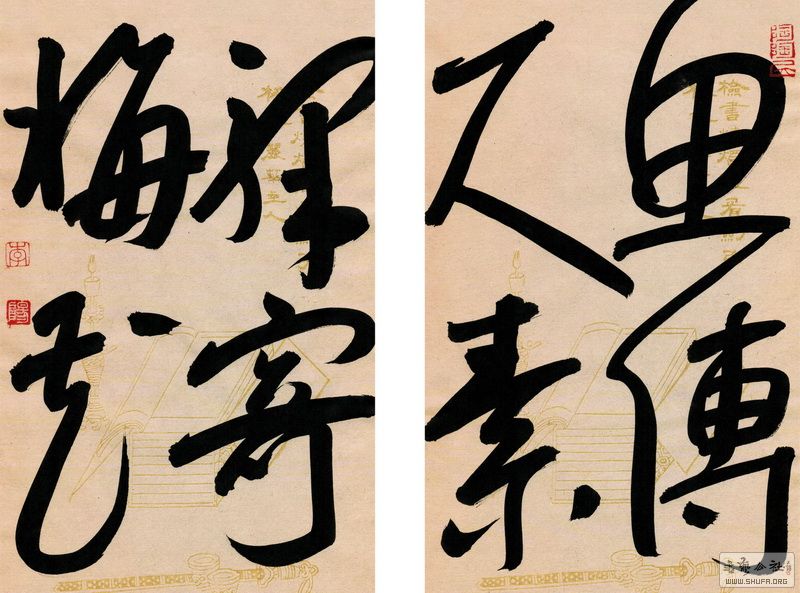 魚傳
尺素
驛寄
梅花
李
書法公社
WWW.SHUFA.ORG